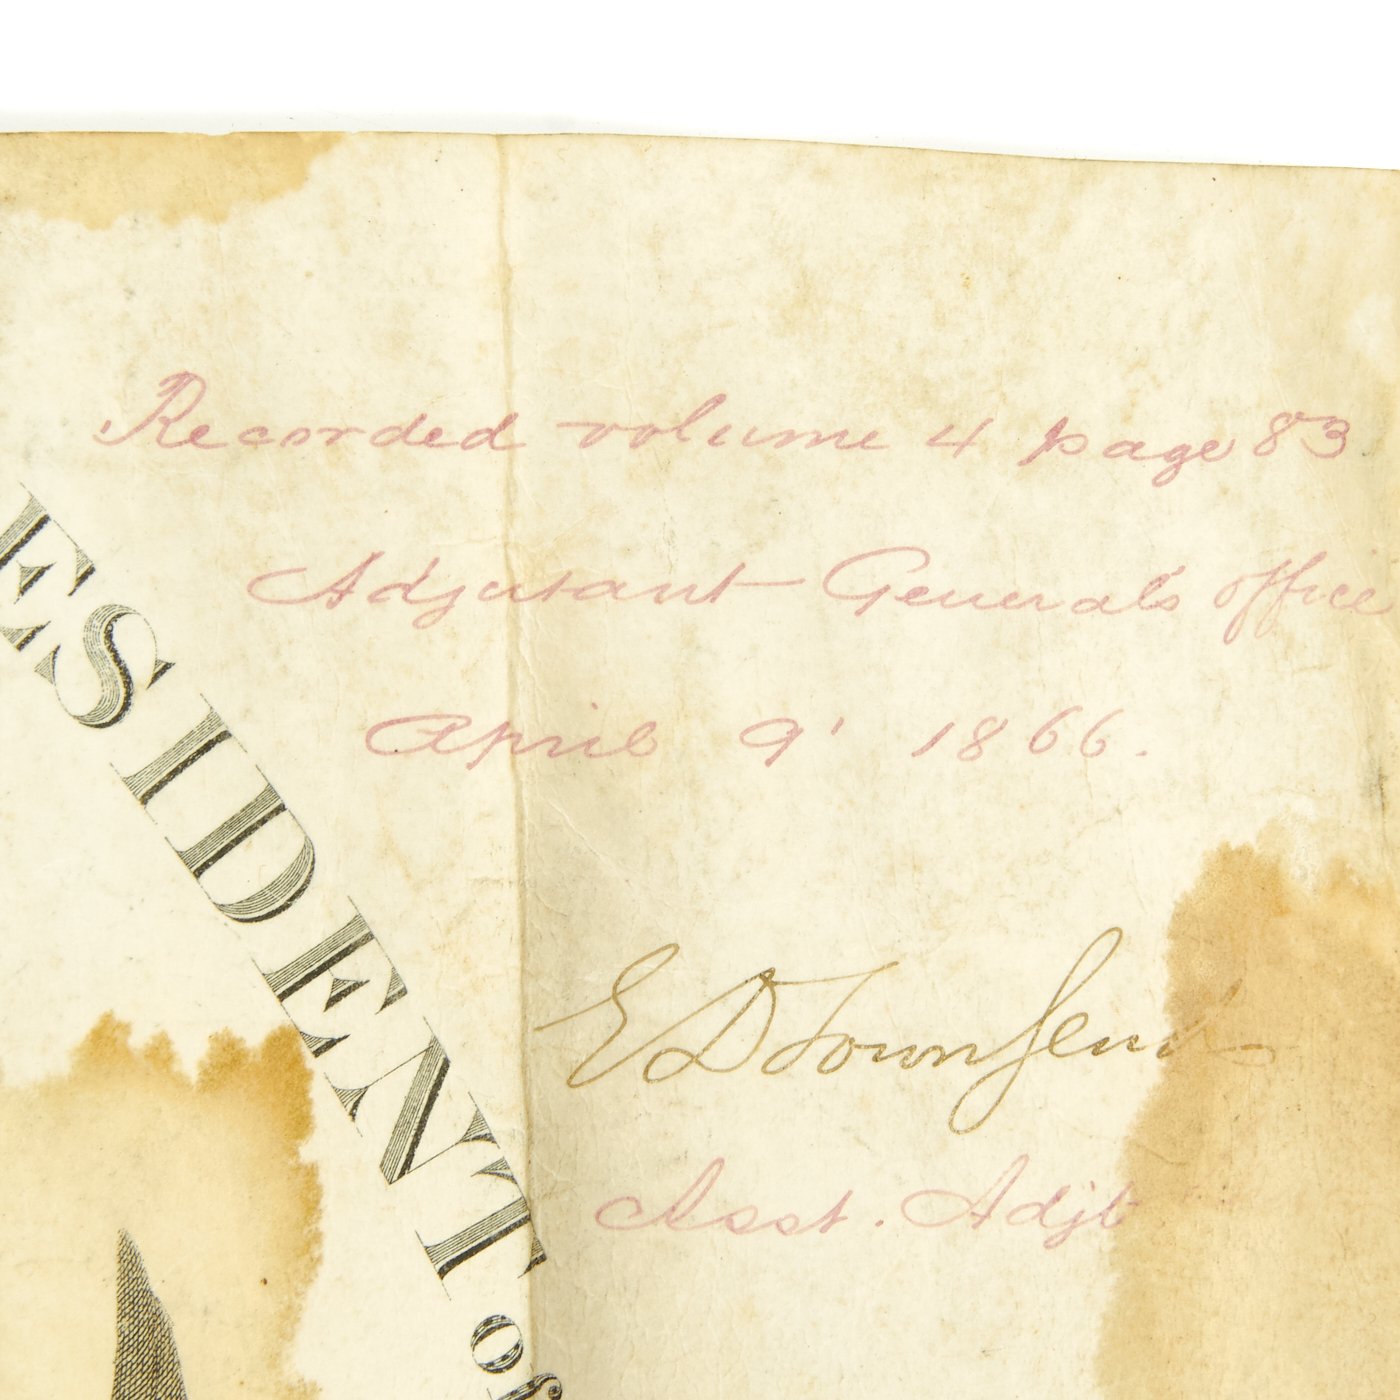 Recorded volume 4 page 83
Adjutant General's office
April 9' 1866.
ESIDENT of
E D Townsend
Asst. Adjt